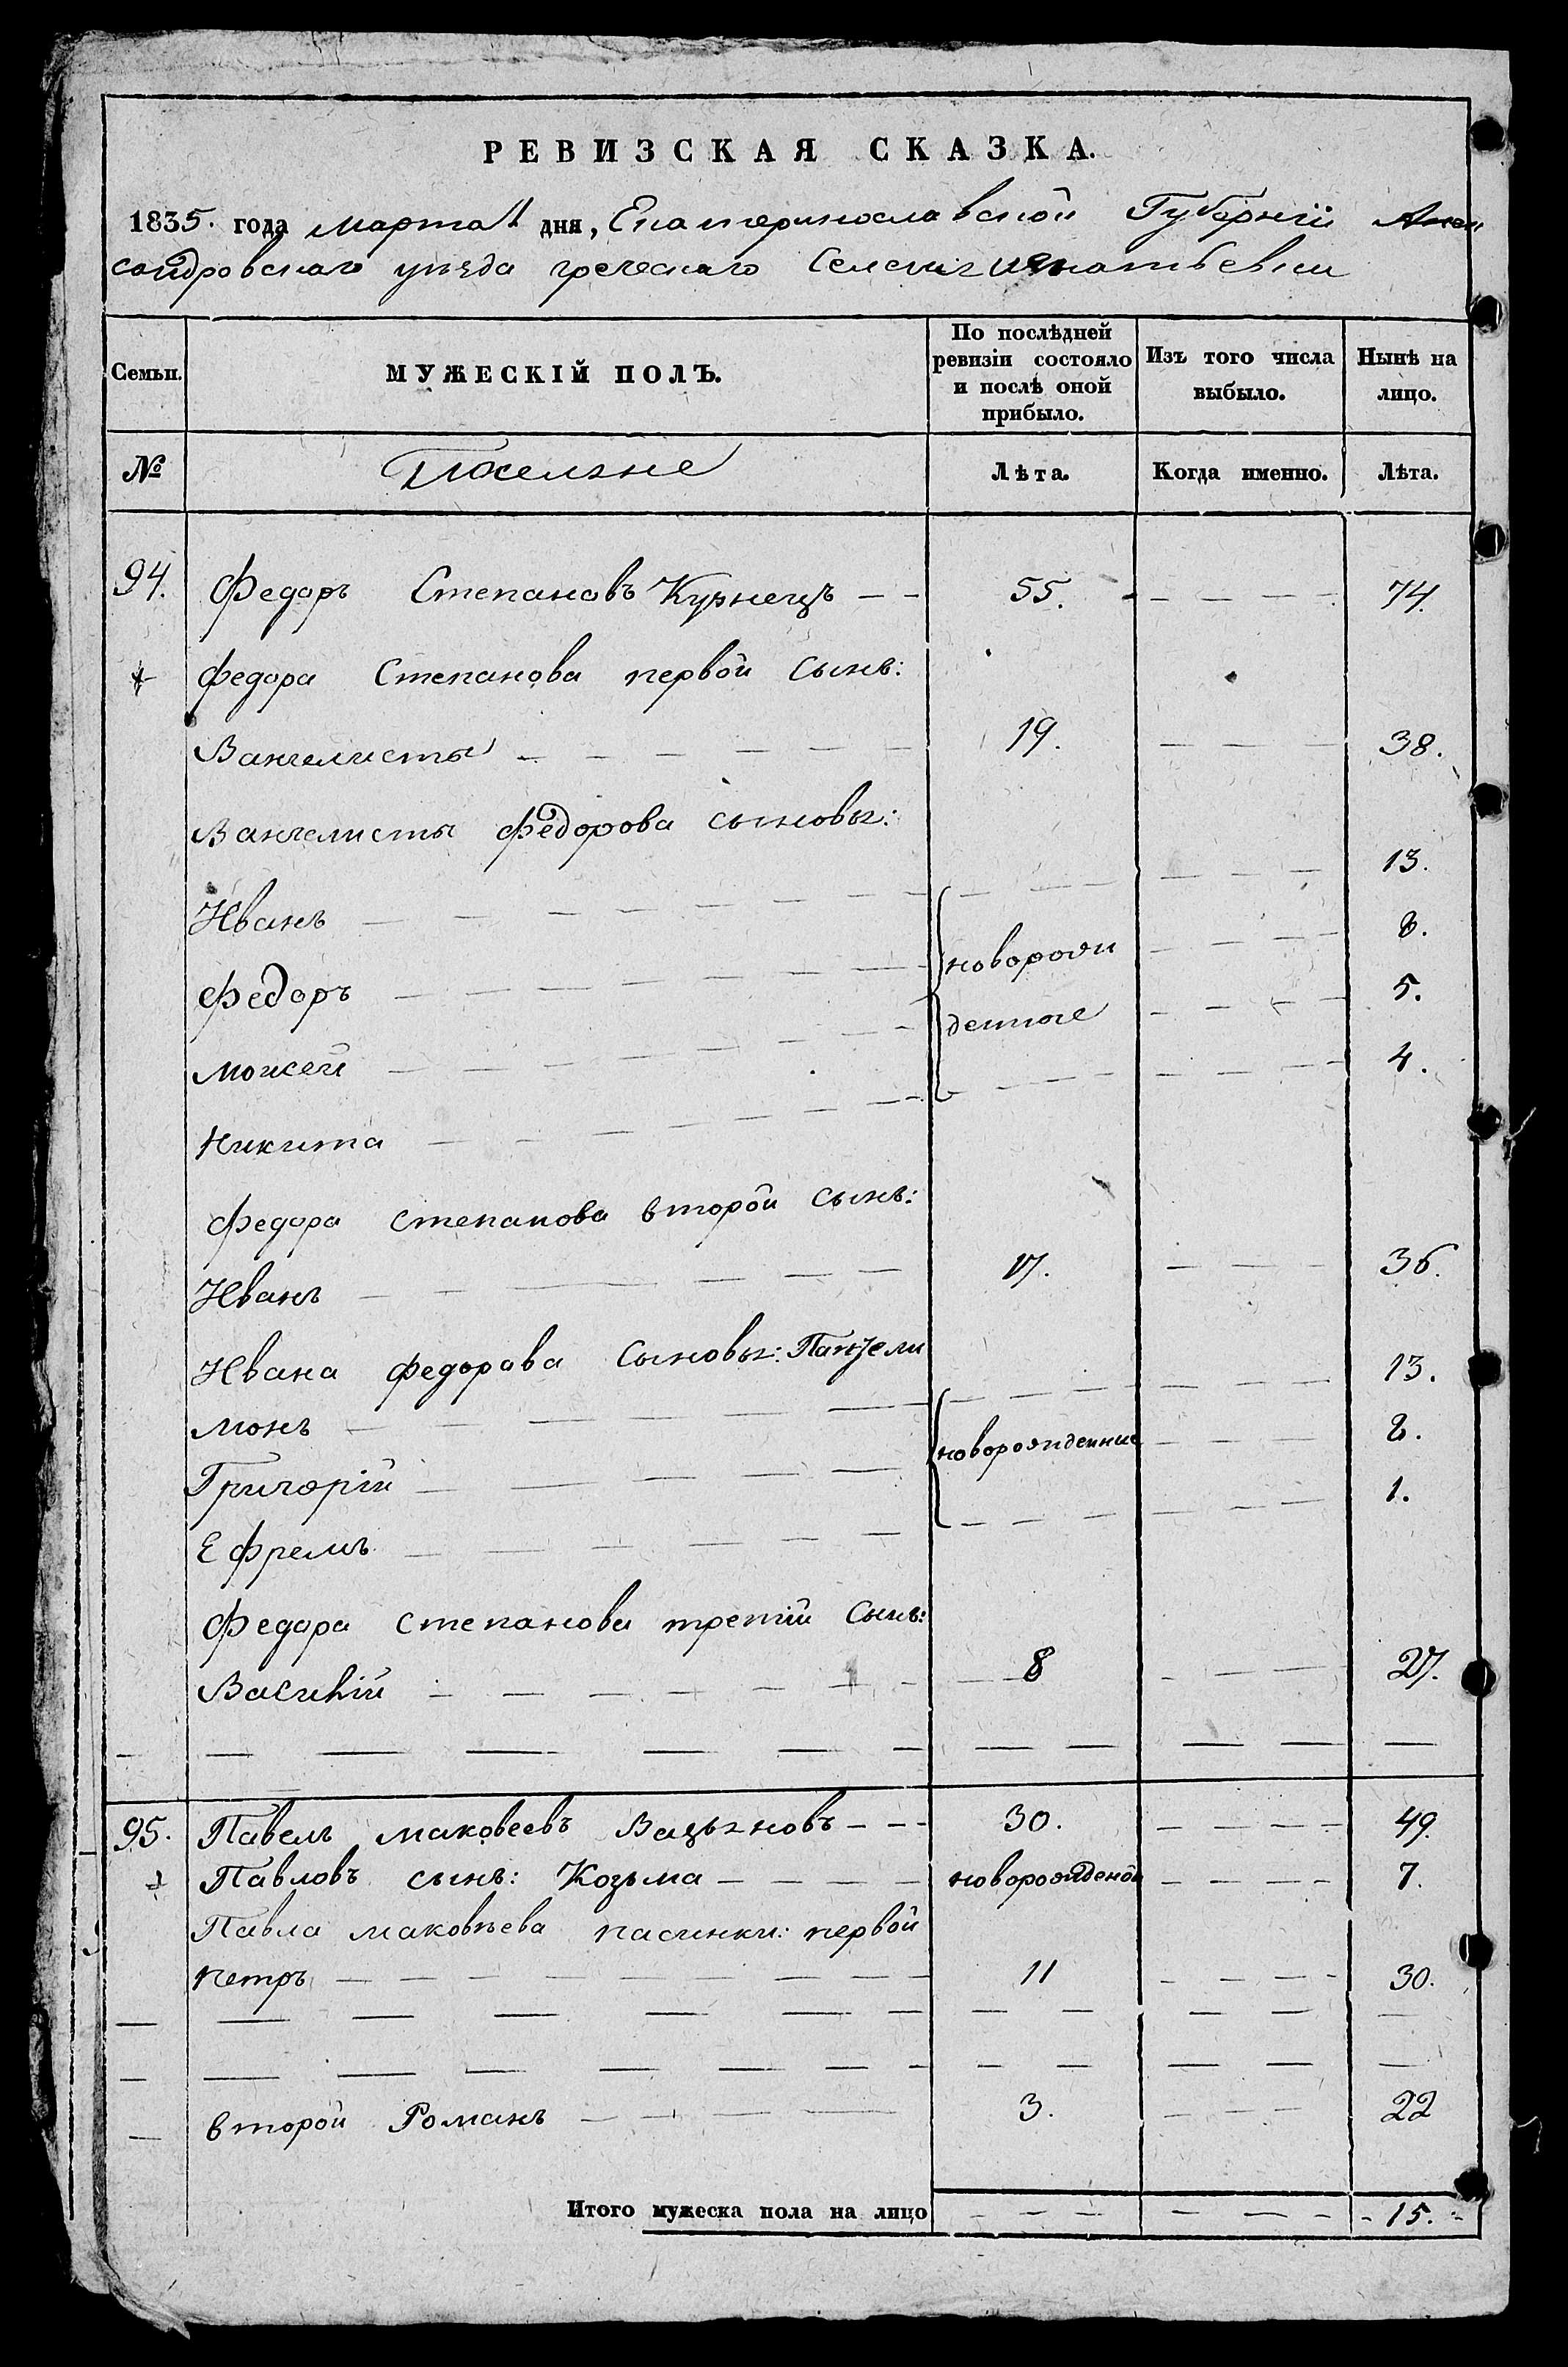 РЕВИЗСКАЯ СКАЗКА.
1835. года марта 11 дня, Екатеринославской Губерніи Алек
сандровскаго уѣзда греческаго Селенія Игнатьевки
Семьи. МУЖЕСКІЙ ПОЛЪ. По послѣдней ревизіи состояло и послѣ оной прибыло. Изъ того числа выбыло. Нынѣ на лицо.
№ Поселяне Лѣта. Когда именно. Лѣта.
94. Федоръ Степановъ Кузнецъ 55. 74.
Федора Степанова первой сынъ:
Вангелисты 19. 38.
Вангелисты Федорова сыновья:
Иванъ 13.
Федоръ новорож 8.
Моисей денные 5.
Никита 4.
Федора Степанова второй сынъ:
Иванъ 17. 36.
Ивана Федорова сыновья: Пантели
монъ 13.
Григорій новорожденные 8.
Ефремъ 1.
Федора Степанова третій сынъ:
Василій 8 27.
95. Павелъ Маковеевъ 30. 49.
Павловъ сынъ: Козьма новорожденой 7.
Павла Маковѣева пасинки: первой
Петръ 11 30.
второй Романъ 3. 22
Итого мужеска пола на лицо 15.